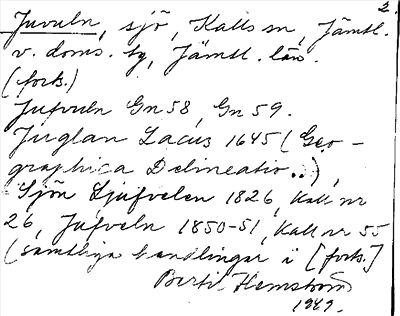 2.
Juvuln, sjö, Kalls sn, Jämtl.
v. doms. tg, Jämtl. län.
(forts.)
Jufvuln Gn 58, Gn 59.
Juglan Lacus 1645 (Geo-
graphica Delineatio..),
Sjön Ljufvelen 1826, Kall nr
26, Jufveln 1850-51, Kall nr 55
(samtliga handlingar i [forts.]
Bertil Hemström
1949.